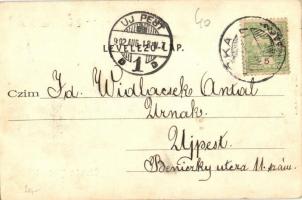 40
UJ PEST
902 AUG.
1
LEVELEZŐ-LAP.
5
Czim Id. Widlacsek Antal
Urnak.
Ujpest
Beniczky utcza 11. szám.